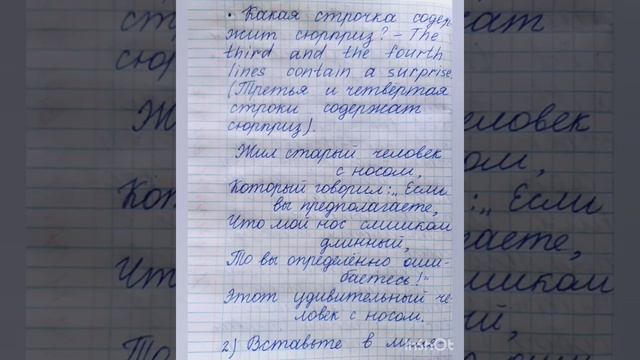 • Какая строчка содер-
жит сюрприз? – The
third and the fourth
lines contain a surprise.
(Третья и четвёртая
строки содержат
сюрприз).
Жил старый человек
с носом,
Который говорил: „Если
вы предполагаете,
Что мой нос слишком
длинный,
То вы определённо оши-
баетесь!"
Этот удивительный че-
ловек с носом.
2) Вставьте в